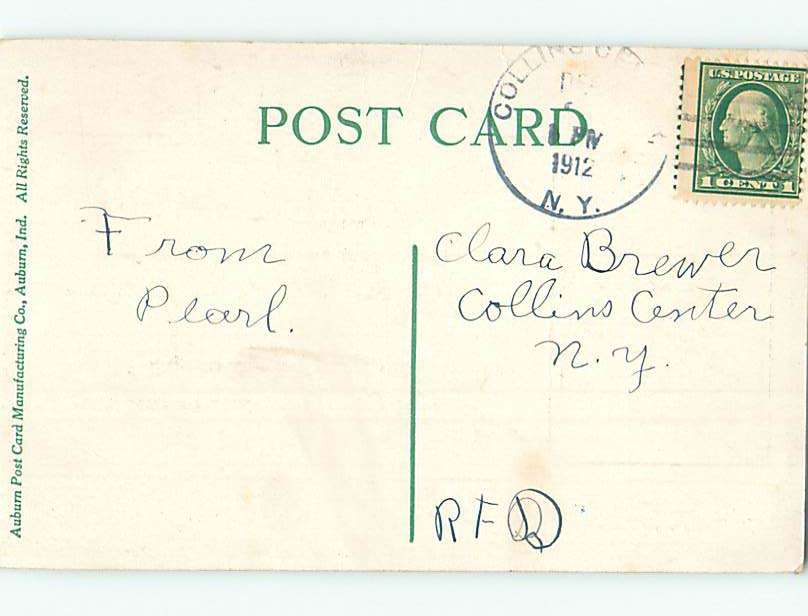 POST CARD
COLLINS
PM
1912
N. Y.
U.S. POSTAGE
1 CENT 1
From
Pearl.
Clara Brewer
Collins Center
N. Y.
R F D
Auburn Post Card Manufacturing Co., Auburn, Ind. All Rights Reserved.